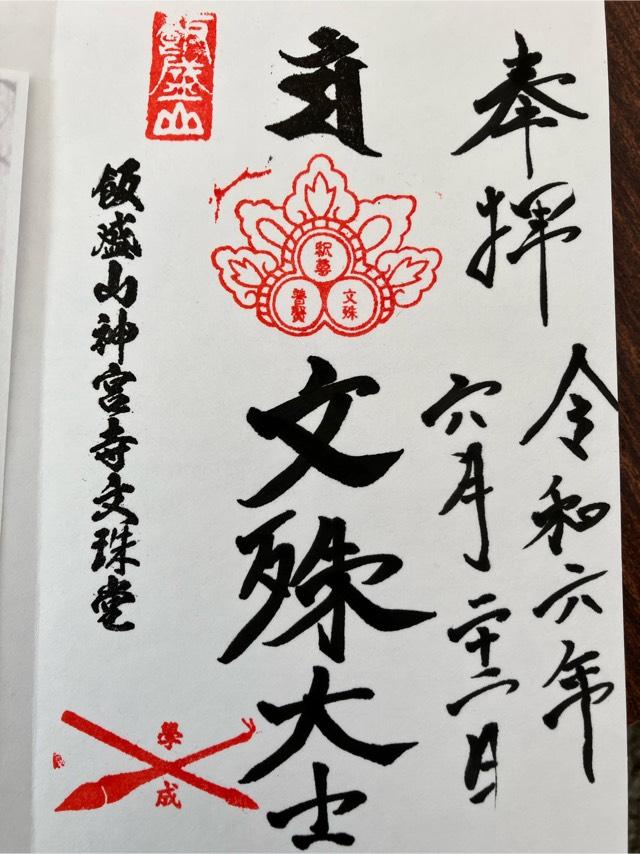 奉拝
令和六年
六月二十二日
文殊大士
釈尊
文殊
普賢
飯盛山
飯盛山神宮寺文珠堂
學成